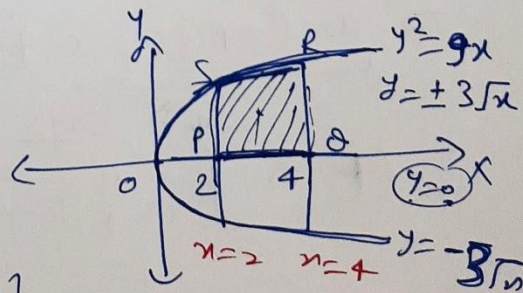 y
S R y² = 9x
y = ± 3√x
P Q
0 2 4 y=0 X
x=2 x=4 y = -3√x